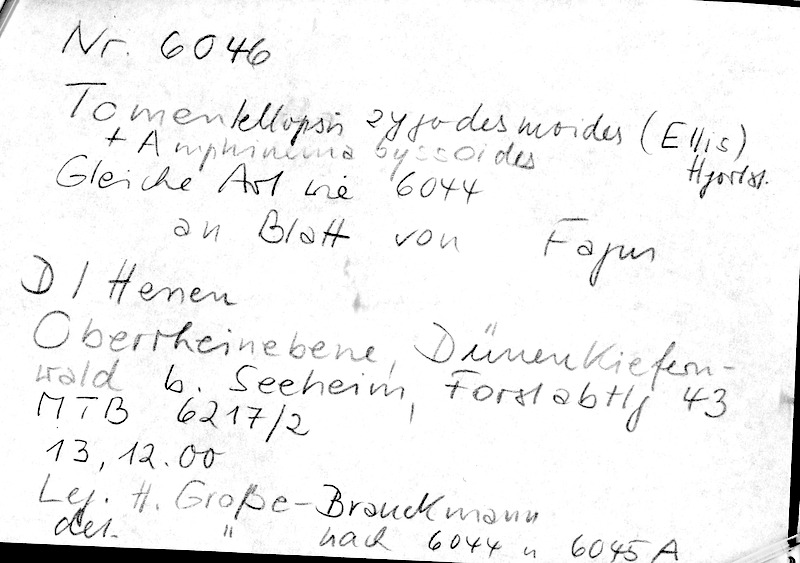 Nr. 6046
Tomentellopsis zygodesmoides (Ellis)
Hjortst.
+ Amphinema byssoides
Gleiche Art wie 6044
an Blatt von Fagus
D / Hessen
Oberrheinebene, Dünenkiefern-
wald b. Seeheim, Forstabtlg 43
MTB 6217/2
13,12.00
Leg. H. Große-Brauckmann
det. " nach 6044 u 6045A